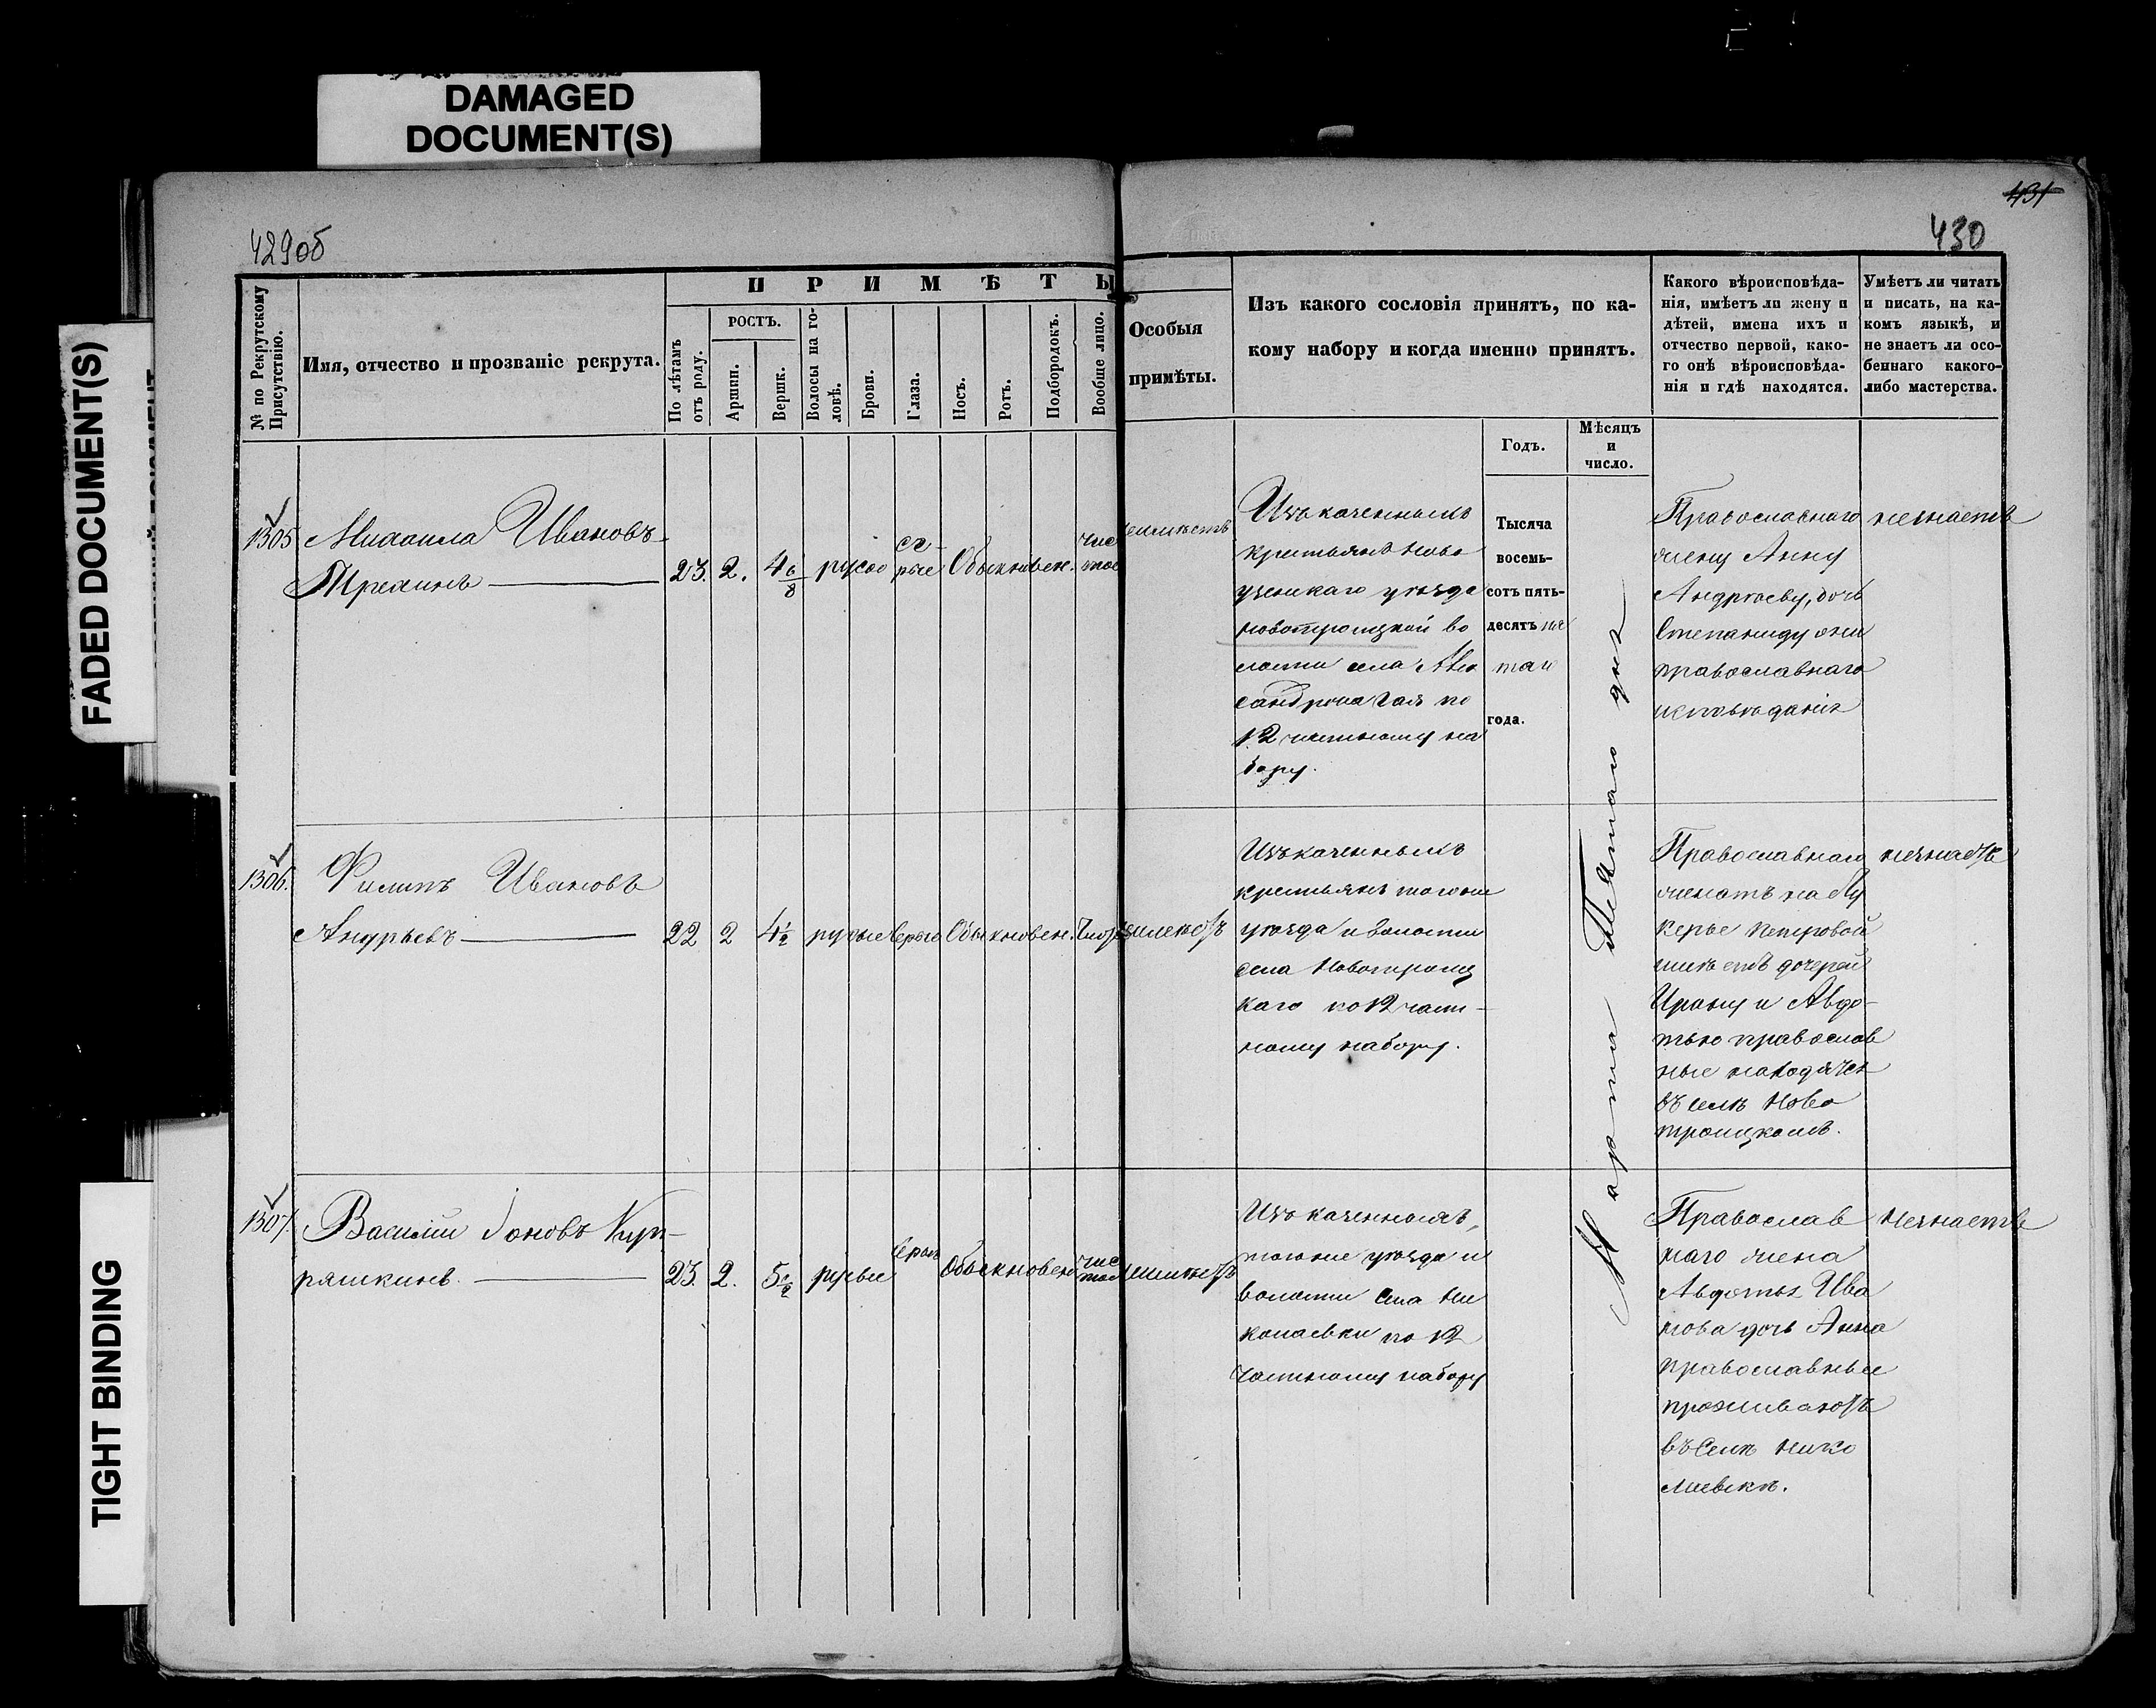 DAMAGED
DOCUMENT(S)
FADED DOCUMENT(S)
TIGHT BINDING
429об
431
430
№ по Рекрутскому
Присутствію.
Имя, отчество и прозваніе рекрута.
ПРИМѢТЫ
По лѣтамъ
отъ роду.
РОСТЪ.
Аршин.
Вершк.
Волосы на го-
ловѣ.
Брови.
Глаза.
Носъ.
Ротъ.
Подбородокъ.
Вообще лицо.
Особыя
примѣты.
Изъ какого сословія принятъ, по ка-
кому набору и когда именно принятъ.
Годъ.
Мѣсяцъ
и
число.
Какого вѣроисповѣда-
нія, имѣетъ ли жену и
дѣтей, имена ихъ и
отчество первой, како-
го онѣ вѣроисповѣда-
нія и гдѣ находятся.
Умѣетъ ли читать
и писать, на ка-
комъ языкѣ, и
не знаетъ ли осо-
беннаго какого-
либо мастерства.
1305
Михаила Ивановъ
Трехинъ
23. 2. 4 6/8 русое сѣ-
рые Обыкновен. чис
тое
неимѣетъ
Изъ казенныхъ
крестьянъ Ново
узенскаго уѣзда
новотроицкой во
лости села Алек
сандрова Гая по
12 частному на
бору.
Тысяча
восемь-
сотъ пять-
десятъ пя
таго
года.
Марта Пятаго дня
Православнаго
жену Анну
Андрееву, дочь
Степаниду они
православнаго
исповѣданія
незнаетъ
1306.
Филипъ Ивановъ
Андреевъ
22 2 4 1/2 русые серые Обыкновен. Чист неимеетъ
Изъ казенныхъ
крестьянъ тогоже
уѣзда и волости
села Новотроиц
каго по 12 част-
ному набору.
Православнаго
женатъ на Лу
керье Петровой
имѣетъ дочерей
Ирину и Авдо-
тью православ
ные находятся
въ селѣ Ново
троицкомъ.
незнаетъ
1307.
Василій Іоновъ Куп-
ряшкинъ.
23. 2. 5 1/2 русые серые Обыкновен чис
тое
неимѣетъ
Изъ казенныхъ,
тогоже уѣзда и
волости села Ни
колаевки по 12
частному набору
Православ
наго жена
Авдотья Ива
нова дочь Анна
православные
проживаютъ
въ селѣ Нико
лаевкѣ.
Незнаетъ